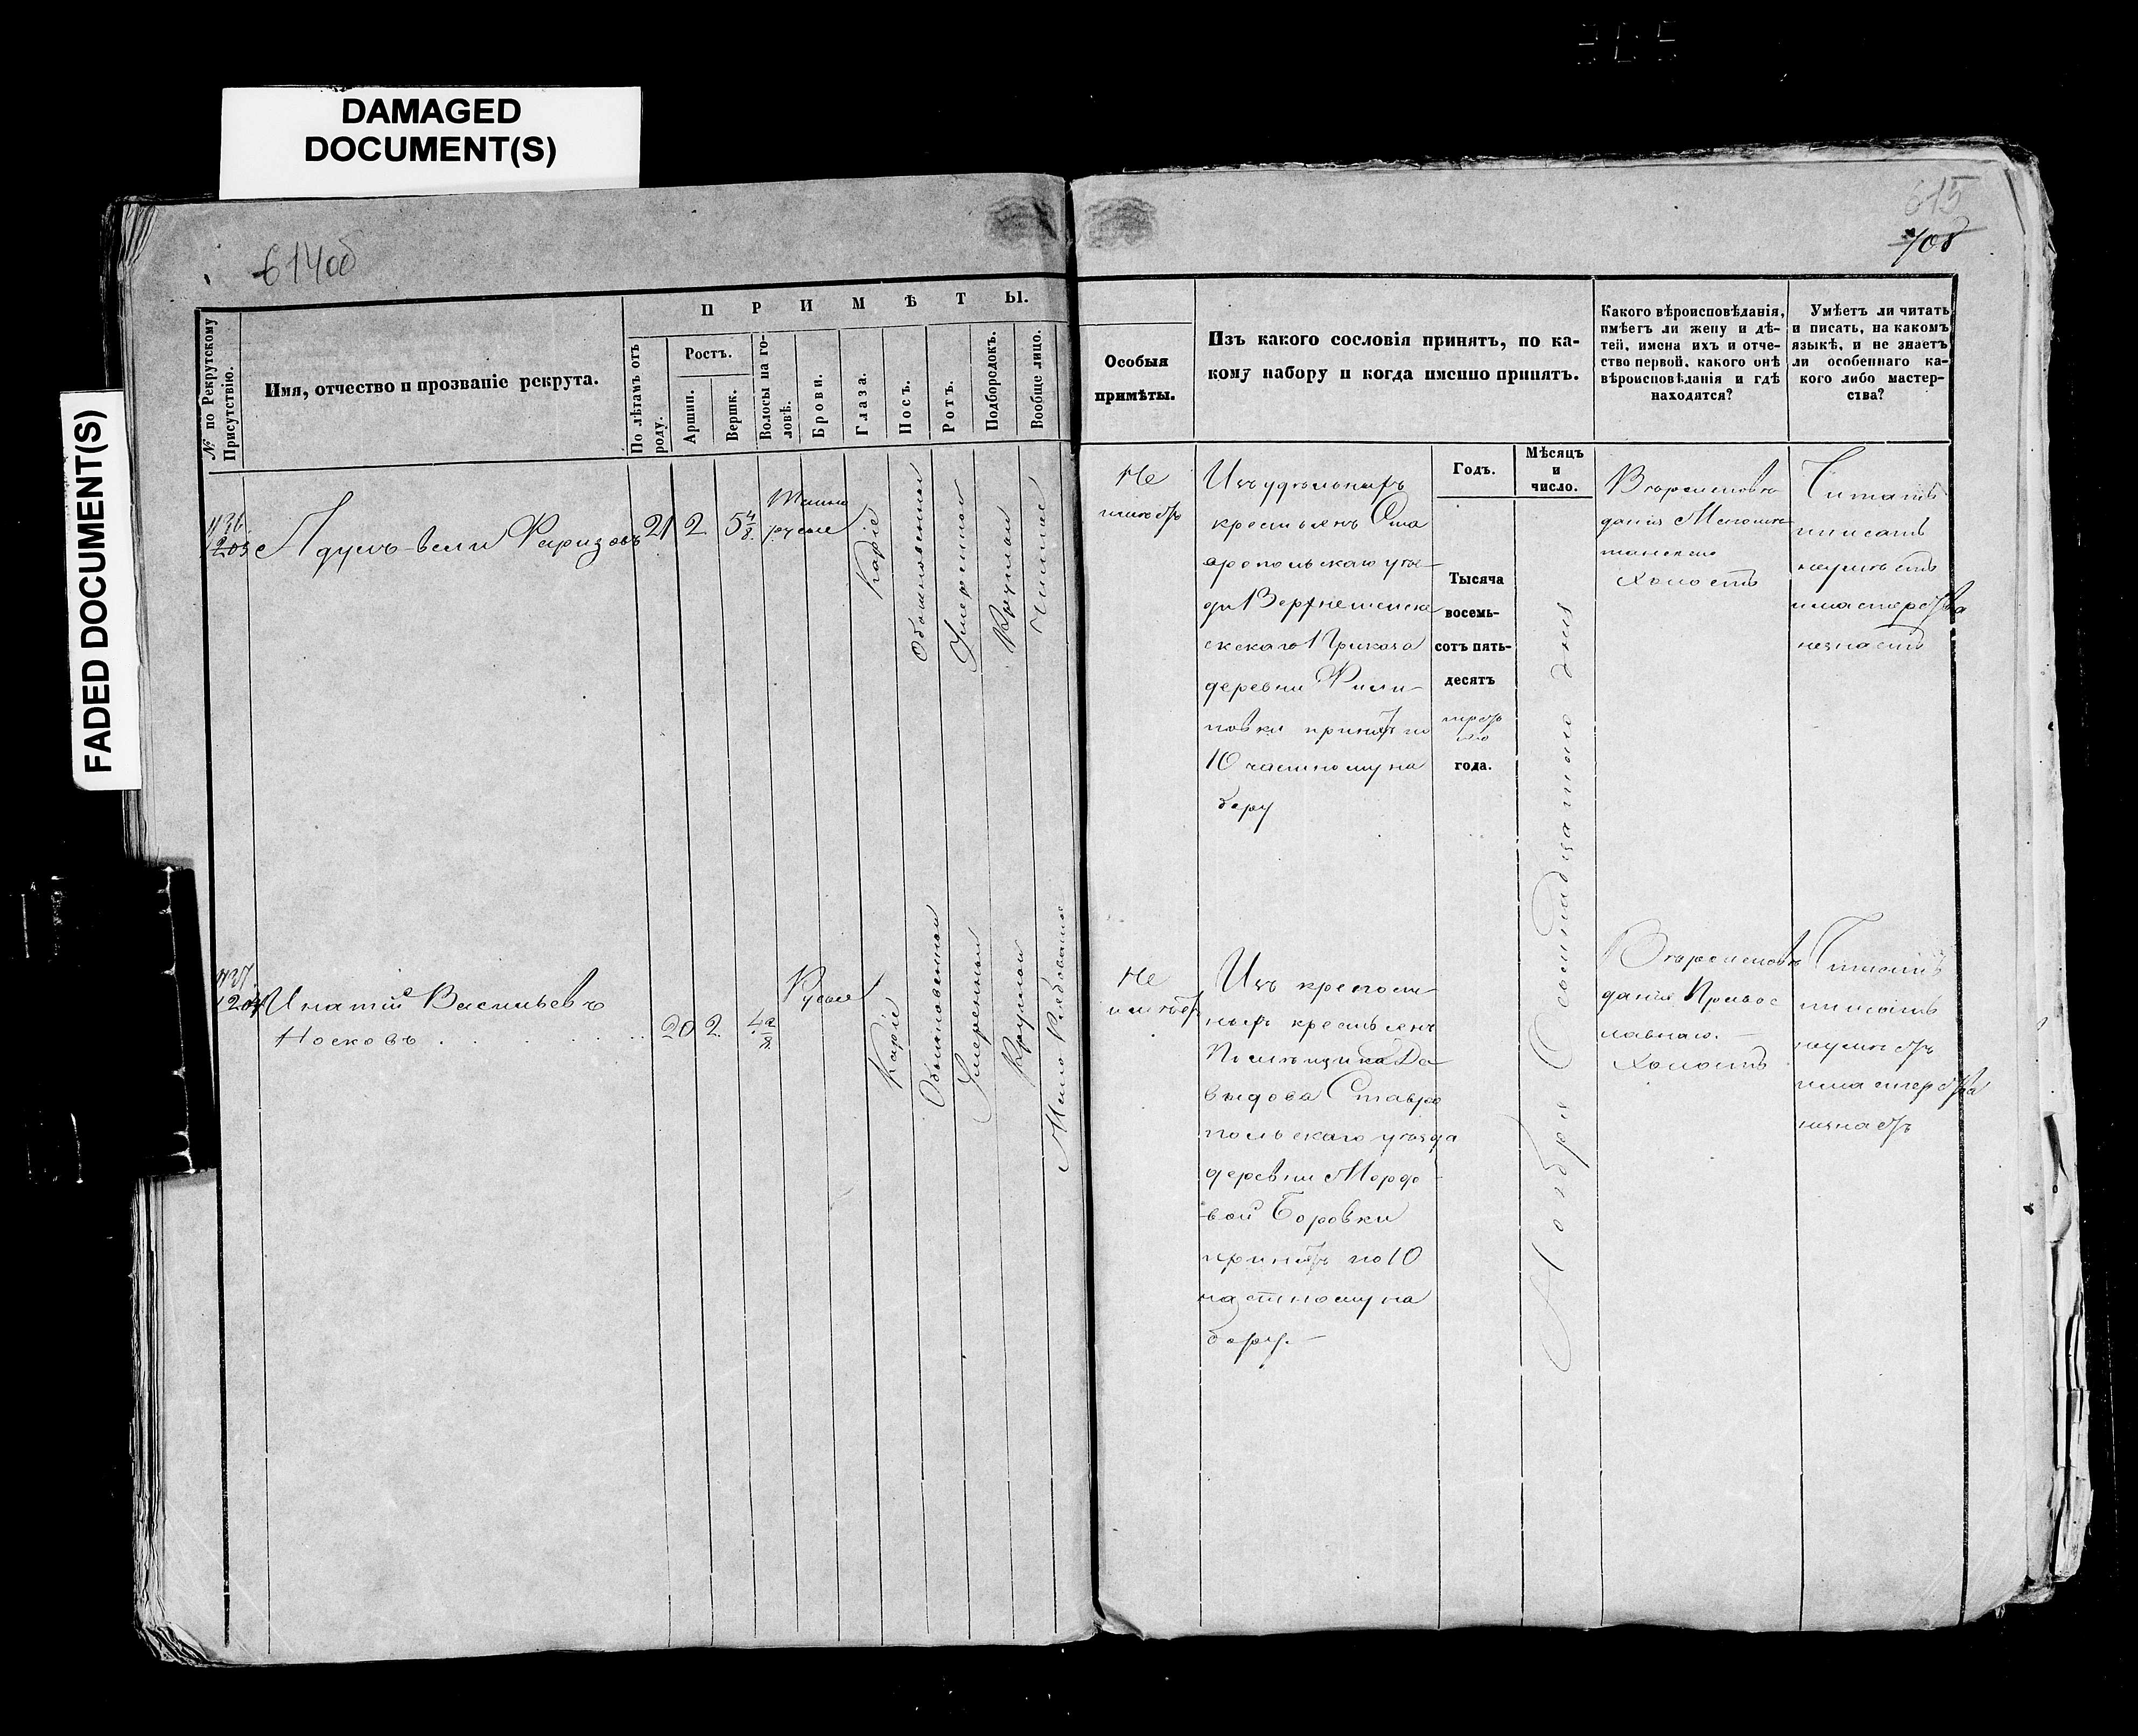 DAMAGED
DOCUMENT(S)
FADED DOCUMENT(S)
614об
615
708
№ по Рекрутскому
Присутствію.
Имя, отчество и прозваніе рекрута.
П Р И М Ѣ Т Ы.
По лѣтамъ отъ
роду.
Ростъ.
Аршин.
Вершк.
Волосы на го-
ловѣ.
Брови.
Глаза.
Носъ.
Ротъ.
Подбородокъ.
Вообще лицо.
Особыя
примѣты.
Изъ какого сословія принятъ, по ка-
кому набору и когда именно принятъ.
Годъ.
Мѣсяцъ
и
число.
Какого вѣроисповѣданія,
имѣетъ ли жену и дѣ-
тей, имена ихъ и отче-
ство первой, какого онѣ
вѣроисповѣданія и гдѣ
находятся?
Умѣетъ ли читать
и писать, на какомъ
языкѣ, и не знаетъ
ли особеннаго ка-
кого либо мастер-
ства?
1203
Фаризовъ
21
2
5 4/8
Темно
русые
Каріе
Обыкновенный
Умеренный
Круглый
Чистое
Не
имѣетъ
Изъ удѣльныхъ
крестьянъ Ста
вропольскаго уѣз
да
скаго Приказа
деревни Фили-
повки принятъ по
10 частному на
бору
Тысяча
восемь-
сотъ пять-
десятъ
третьяго
года.
Ноября Осьмнадцатаго дня
Вѣроисповѣ
данія Магоме
танскаго
Холостъ
Читать
писать
неумѣетъ
имастерства
незнаетъ
1204
Игнатій Васильевъ
Носковъ
20
2
4 2/8
Русые
Каріе
Обыкновенный
Умеренный
Круглый
Мало Рябоватое
Не
имѣетъ
Изъ крепост
ныхъ крестьянъ
Помѣщика Да
выдова Ставро
польскаго уѣзда
деревни Мордо
вой Боровки
принятъ по 10
частному на
бору.
Вѣроисповѣ
данія Правос
лавнаго.
Холостъ
Читать
писать
неумѣетъ
имастерства
незнаетъ